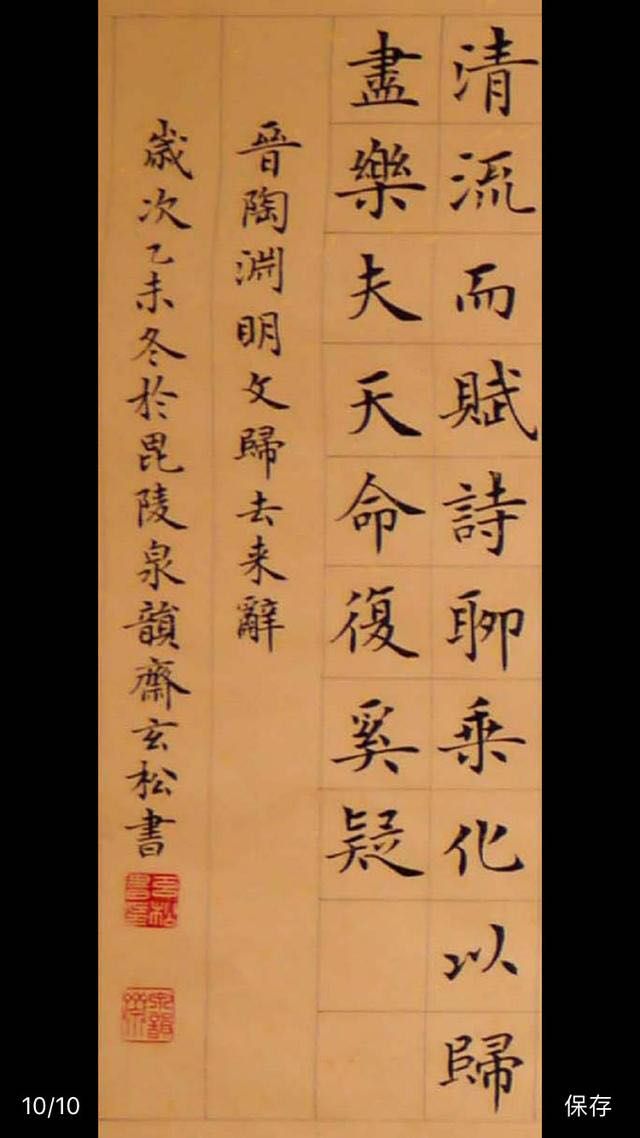 清流而賦詩聊乘化以歸
盡樂夫天命復奚疑
晉陶淵明文歸去来辭
歲次乙未冬於毘陵泉韻齋玄松書
10/10
保存